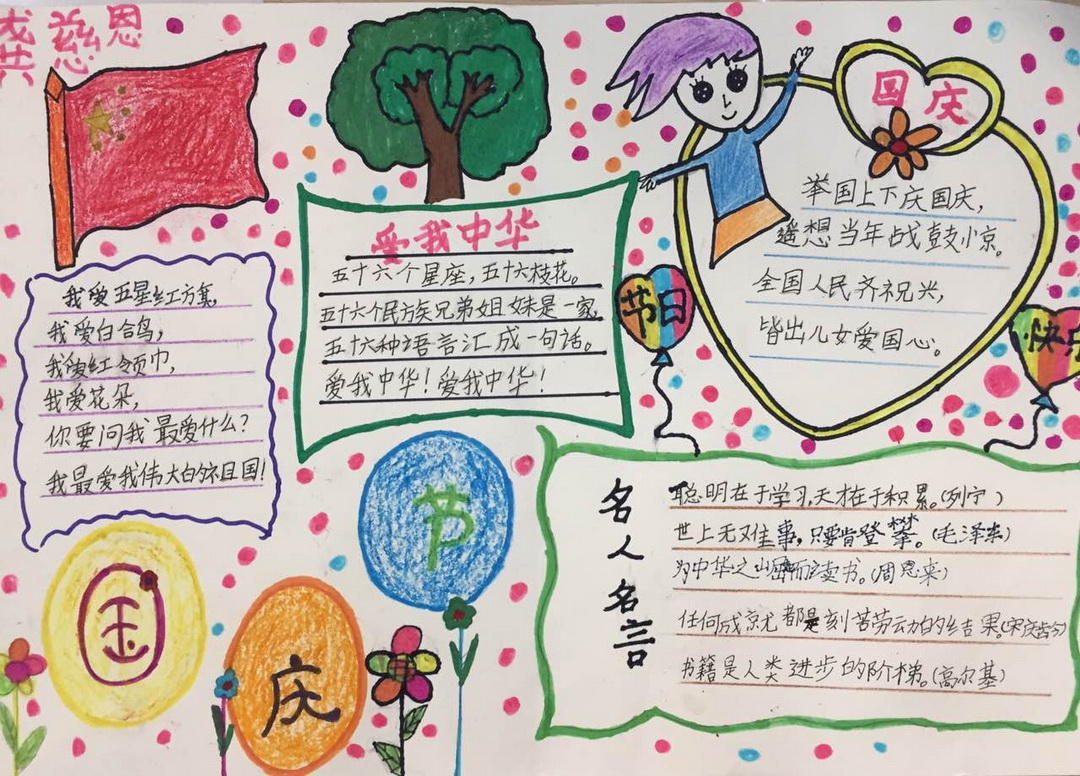 慈恩
我爱五星红方集,
我爱白合鸟,
我爱红领巾,
我爱花朵,
你要问我最爱什么?
我最爱我伟大的祖国!
爱我中华
五十六个星座,五十六枝花。
五十六个民方族兄弟姐妹是一家
五十六种语言汇成一句话。
爱我中华!爱我中华!
国庆
举国上下庆国庆,
遥想当年战鼓小京。
全国人民齐祝兴,
皆出儿女爱国心。
节日
快乐
国
庆
节
名人名言
聪明在于学习,天才在于积累。(列宁)
世上无难事,只要肯登攀。(毛泽东)
为中华之崛而读书。(周恩来)
任何成就都是刻苦劳动的结果。(宋庆龄)
书籍是人类进步的阶梯。(高尔基)